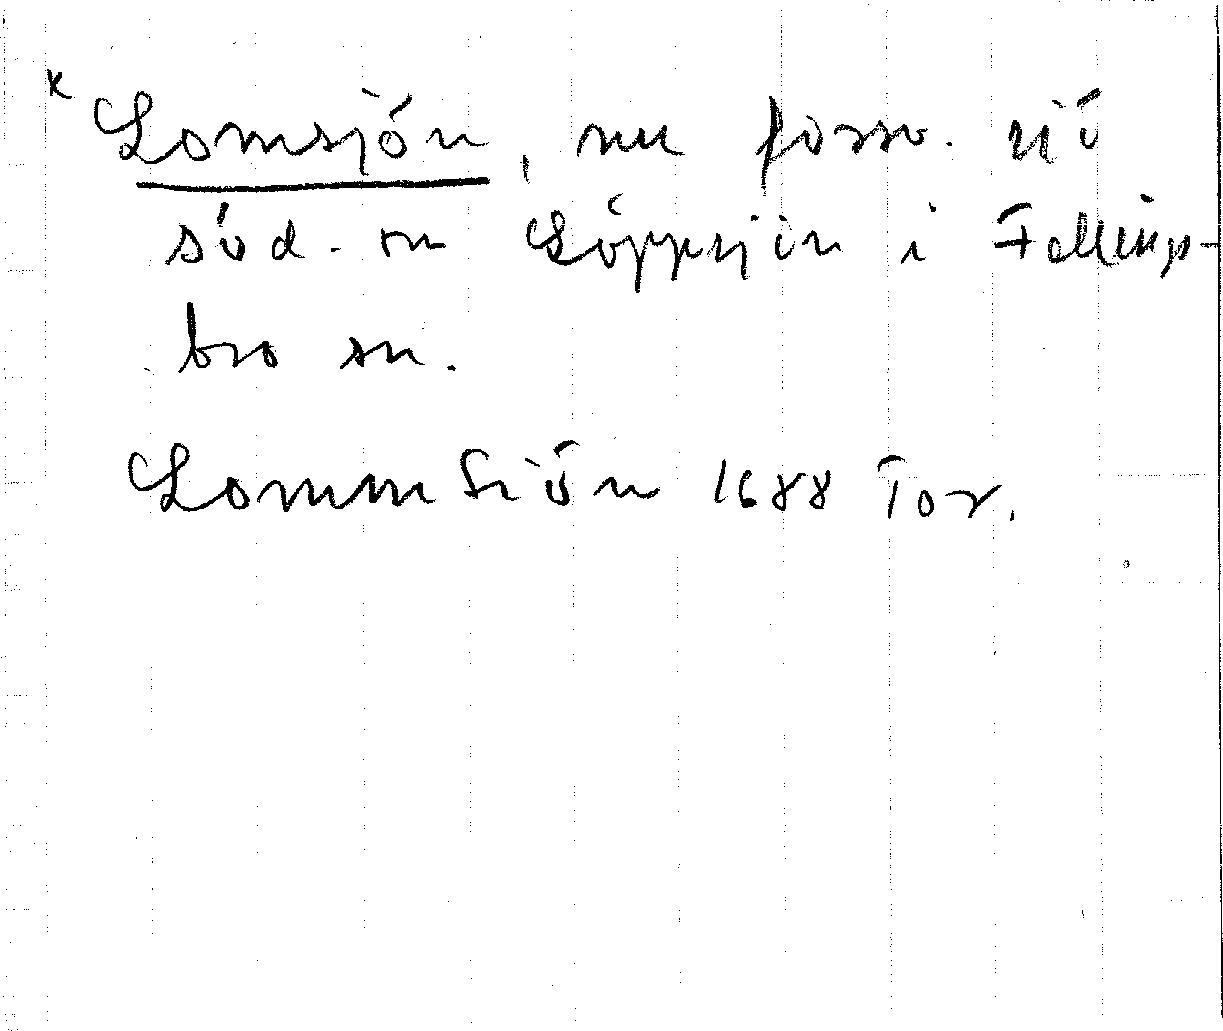 x Lomsjön, nu försv. sjö
söd. om Löppsjön i Fellings-
bro sn.
Lomm Siön 1688 Tor.